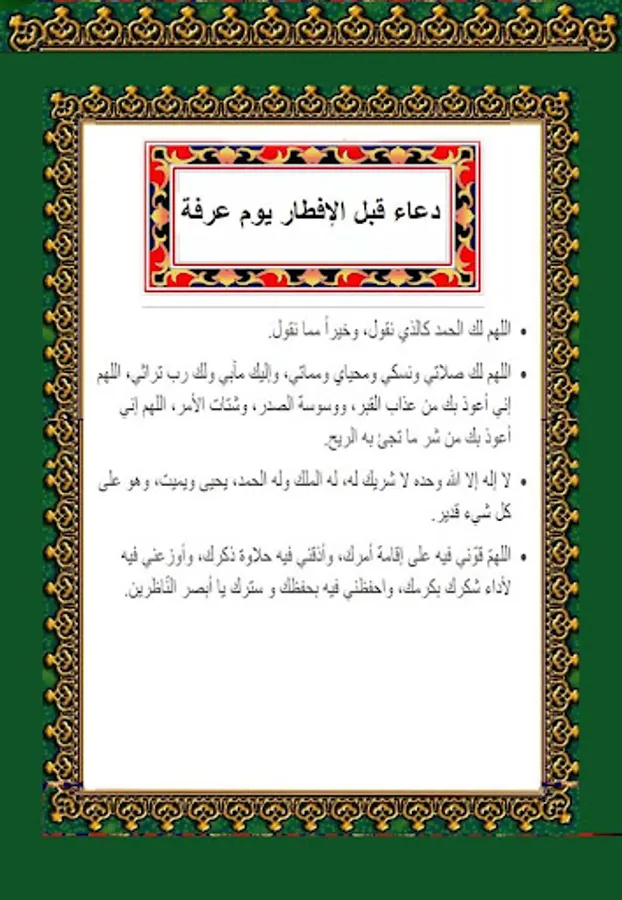 دعاء قبل الإفطار يوم عرفة
• اللهم لك الحمد كالذي نقول، وخيراً مما نقول.
• اللهم لك صلاتي ونسكي ومحياي ومماتي، وإليك مآبي ولك رب تراثي، اللهم
إني أعوذ بك من عذاب القبر، ووسوسة الصدر، وشتات الأمر، اللهم إني
أعوذ بك من شر ما تجئ به الريح.
• لا إله إلا الله وحده لا شريك له، له الملك وله الحمد، يحيى ويميت، وهو على
كل شيء قدير.
• اللهمّ قوّني فيه على إقامة أمرك، وأذقني فيه حلاوة ذكرك، وأوزعني فيه
لأداء شكرك بكرمك، واحفظني فيه بحفظك و سترك يا أبصر النّاظرين.